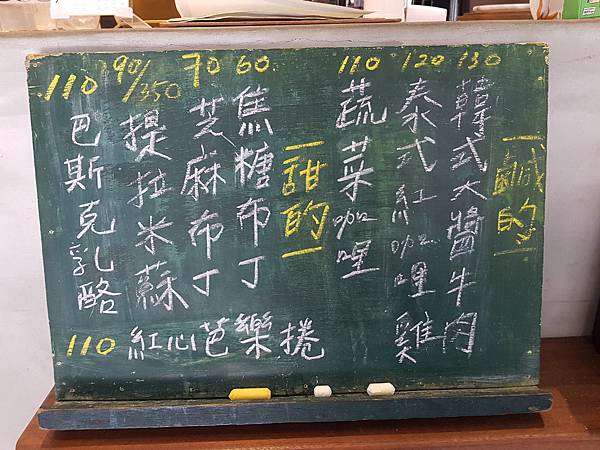 鹹的
130 韓式大醬牛肉
120 泰式紅咖哩雞
110 蔬菜咖哩
甜的
60 焦糖布丁
70 芝麻布丁
90/350 提拉米蘇
110 巴斯克乳酪
110 紅心芭樂捲